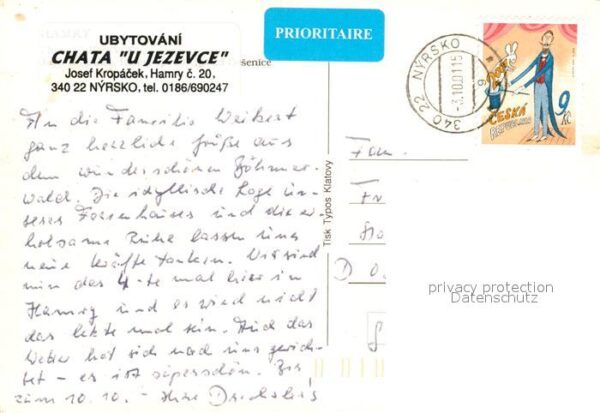 UBYTOVÁNÍ
CHATA "U JEZEVCE"
Josef Kropáček, Hamry č. 20,
340 22 NÝRSKO, tel. 0186/690247
PRIORITAIRE
340 22 NÝRSKO
-3.10.01 15
ČESKÁ
REPUBLIKA
9 Kč
šenice
An die Familie Weikert
ganz herzliche Grüße aus
dem wunderschönen Böhmer-
wald. Die idyllische Lage un-
seres Ferienhauses und die er-
holsame Ruhe lassen uns
neue Kräfte tanken. Wir sind
nun das 4-te mal hier in
Hamry und es wird nicht
das letzte mal sein. Auch das
Wetter hat sich nach uns gerich-
tet - es ist superschön. Bis
zum 10.10. - Ihre
Tisk Typos Klatovy
Fam.
D
privacy protection
Datenschutz